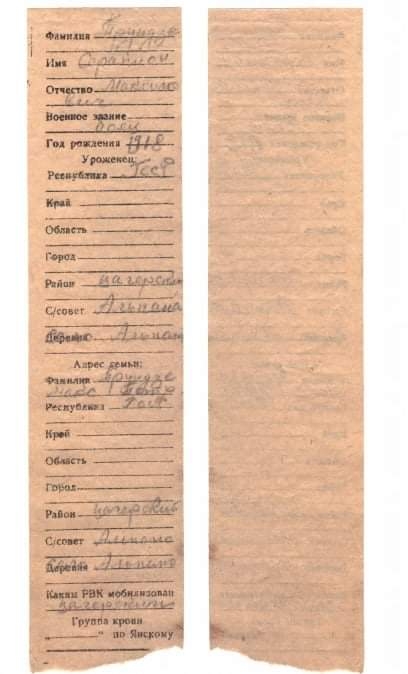 Фамилия
Имя
Отчество Максимо
вич
Военное звание
боец
Год рождения 1918
Урожекец:
Республика Гсср
Край
Область
Город
Район цагерский
С/совет Альпана
Деревня Альпана
Адрес семьи:
Фамилия
Макс
Республика Гсср
Край
Область
Город
Район цагерский
С/совет Альпана
Деревня Альпана
Каким РВК мобилизован
цагерским
Группа крови
„ “ по Янскому